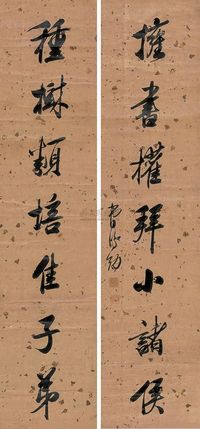 擁書權拜小諸侯
種樹類培佳子弟